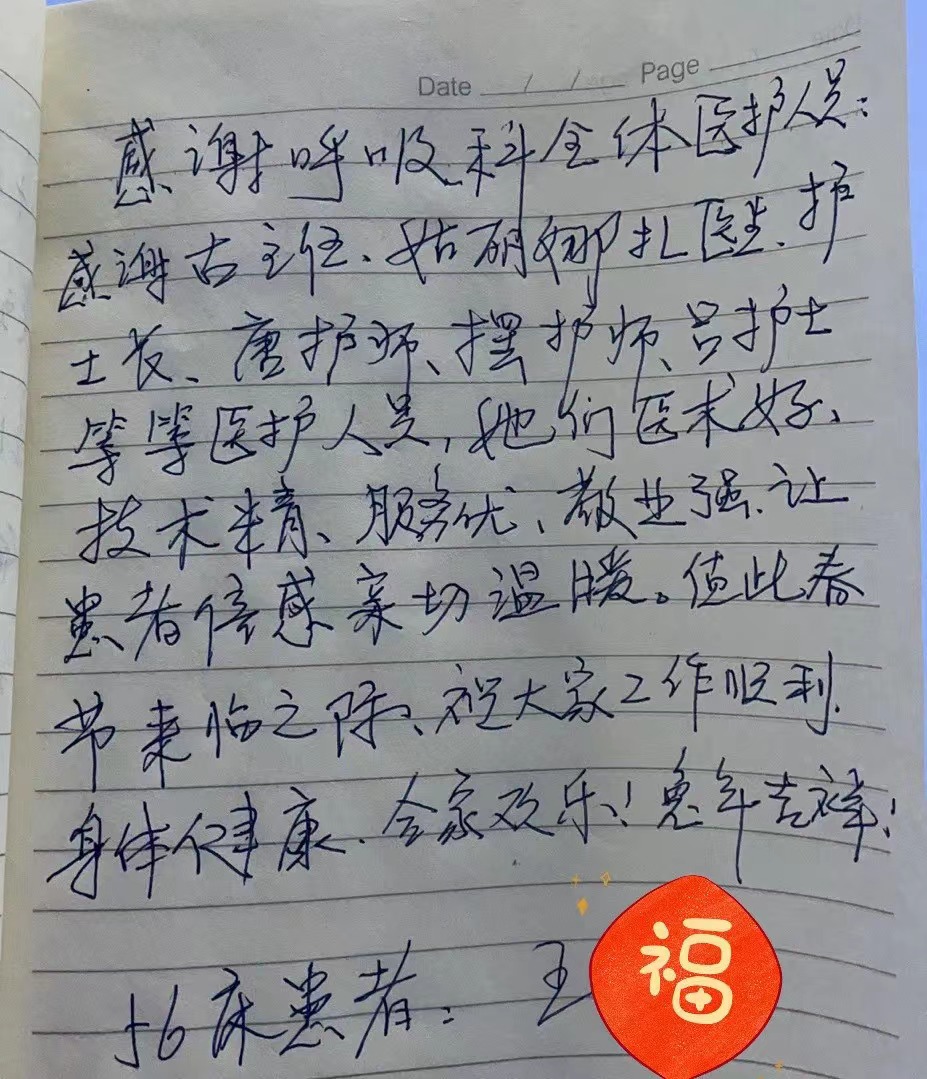 Date / / Page
感谢呼吸科全体医护人员:
感谢古主任、姑丽娜扎医生、护
士长、唐护师、摆护师、吕护士
等等医护人员,她们医术好、
技术精、服务优、敬业强、让
患者倍感亲切温暖。值此春
节来临之际、祝大家工作顺利
身体健康、合家欢乐!兔年吉祥!
56床患者: 王
福